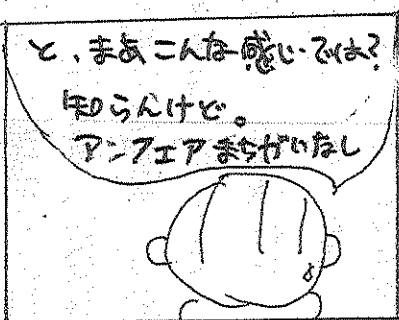 と、まあこんな感じではよ?
知らんけど。
アンフェアまちがいなし